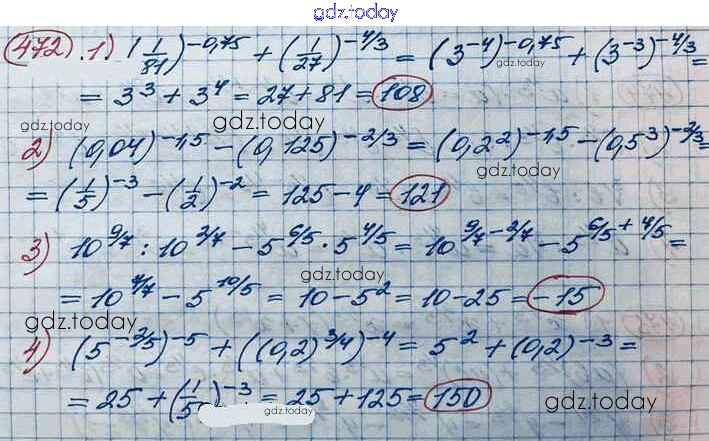 gdz.today
472.1) (1/81)^-0,75 + (1/27)^-4/3 = (3^-4)^-0,75 + (3^-3)^-4/3 =
gdz.today
gdz.today
= 3^3 + 3^4 = 27 + 81 = 108
gdz.today
gdz.today
2) (0,04)^-1,5 - (0,125)^-2/3 = (0,2^2)^-1,5 - (0,5^3)^-2/3 =
gdz.today
= (1/5)^-3 - (1/2)^-2 = 125 - 4 = 121
3) 10^9/7 : 10^2/7 - 5^6/5 · 5^4/5 = 10^9/7-2/7 - 5^6/5+4/5 =
gdz.today
= 10^7/7 - 5^10/5 = 10 - 5^2 = 10 - 25 = -15
gdz.today
gdz.today
4) (5^-2/5)^-5 + ((0,2)^3/4)^-4 = 5^2 + (0,2)^-3 =
= 25 + (1/5)^-3 = 25 + 125 = 150
gdz.today
gdz.today